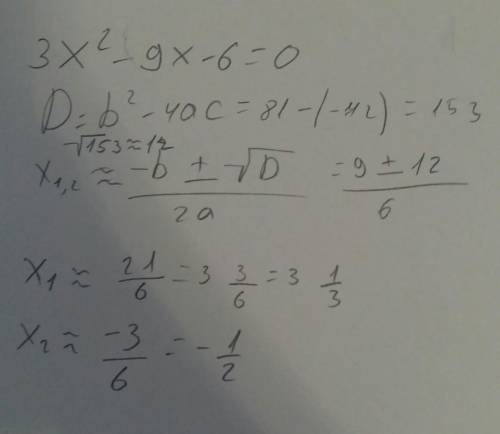 3x² - 9x - 6 = 0
D = b² - 4ac = 81 - (-42) = 153
√153 ≈ 12
x₁,₂ ≈ (-b ± √D)/2a = (9 ± 12)/6
x₁ ≈ 21/6 = 3 3/6 = 3 1/3
x₂ ≈ -3/6 = -1/2